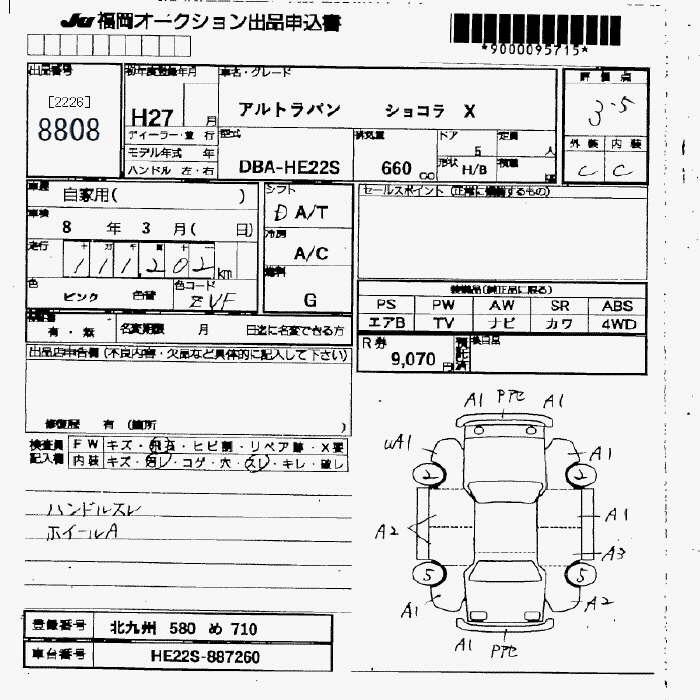 JU 福岡オークション出品申込書
*9000095715*
出品番号
[2226]
8808
初年度登録年月
H27 月
ディーラー・並行
モデル年式 年
ハンドル 左・右
車名・グレード
アルトラパン ショコラ X
型式
DBA-HE22S
排気量
660 cc
ドア
5
形状
H/B
定員
人
積載
評価点
3.5
外装 内装
C C
車歴
自家用( )
車検
8 年 3 月( 日)
走行
十 万 千 百 十 一
111,202 km
色
ピンク 色替
色コード
ZVF
シフト
D A/T
冷房
A/C
燃料
G
セールスポイント (正常に機能するもの)
装備品(純正品に限る)
PS PW AW SR ABS
エアB TV ナビ カワ 4WD
有・無
名変期限 月 日迄に名変できる方
R券
9,070 円
出品店申告欄 (不良内容・欠品など具体的に記入して下さい)
修復歴 有 (箇所 )
検査員記入欄
FW キズ・飛石・ヒビ割・リペア跡・X要
内装 キズ・汚レ・コゲ・穴・スレ・キレ・破レ
ハンドルスレ
ホイールA
A1 PTル A1
UA1 A1
2 2
A2 A1
A3
5 5
A1 A2
A1 PTル
登録番号 北九州 580 め 710
車台番号 HE22S-887260